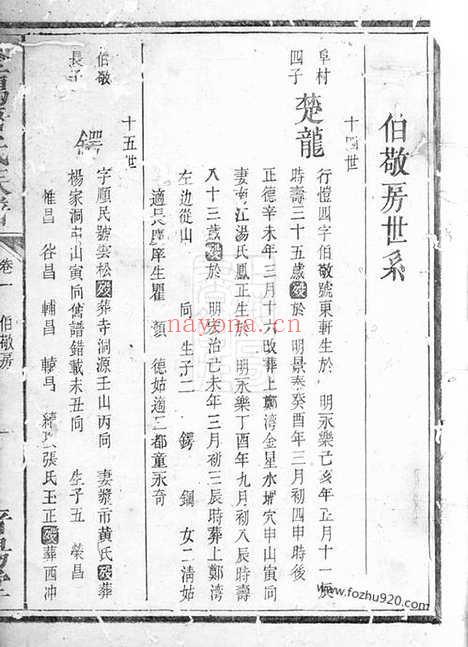 伯敬房世系
十四世
早村
四子
楚龍
行愷四字伯敬號東軒生於 明永樂己亥年五月十一
時壽三十五歲歿於 明景泰癸酉年三月初四申時後
正德辛未年三月十六改葬上鄭湾金星水堀穴申山寅向
妻 江湯氏鳳正生於 明永樂丁酉年九月初八辰時壽
八十三歲歿於 明弘治己未年三月初三辰時葬上鄭湾
左边從山 向生子二 鍔 鋼 女二淸姑
適長 庠生瞿 顏 德姑適三都童永奇
十五世
伯敬
長子
鍔
字順民號雲松歿葬寺洞源壬山丙向 妻漿市黃氏歿葬
楊家洞 山寅向舊譜錯載未丑向 生子五 榮昌
惟昌 谷昌 輔昌 轅昌 張氏玉正歿葬西冲
卷一 伯敬房 一
nayona.cn
www.fozhu920.com